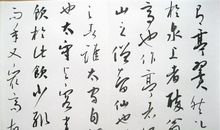 有亭翼然臨
於泉上者醉翁
亭也作亭者
山之僧智仙也
之者誰太守自
也太守与客来
飲於此飲少輒
而年又最高故